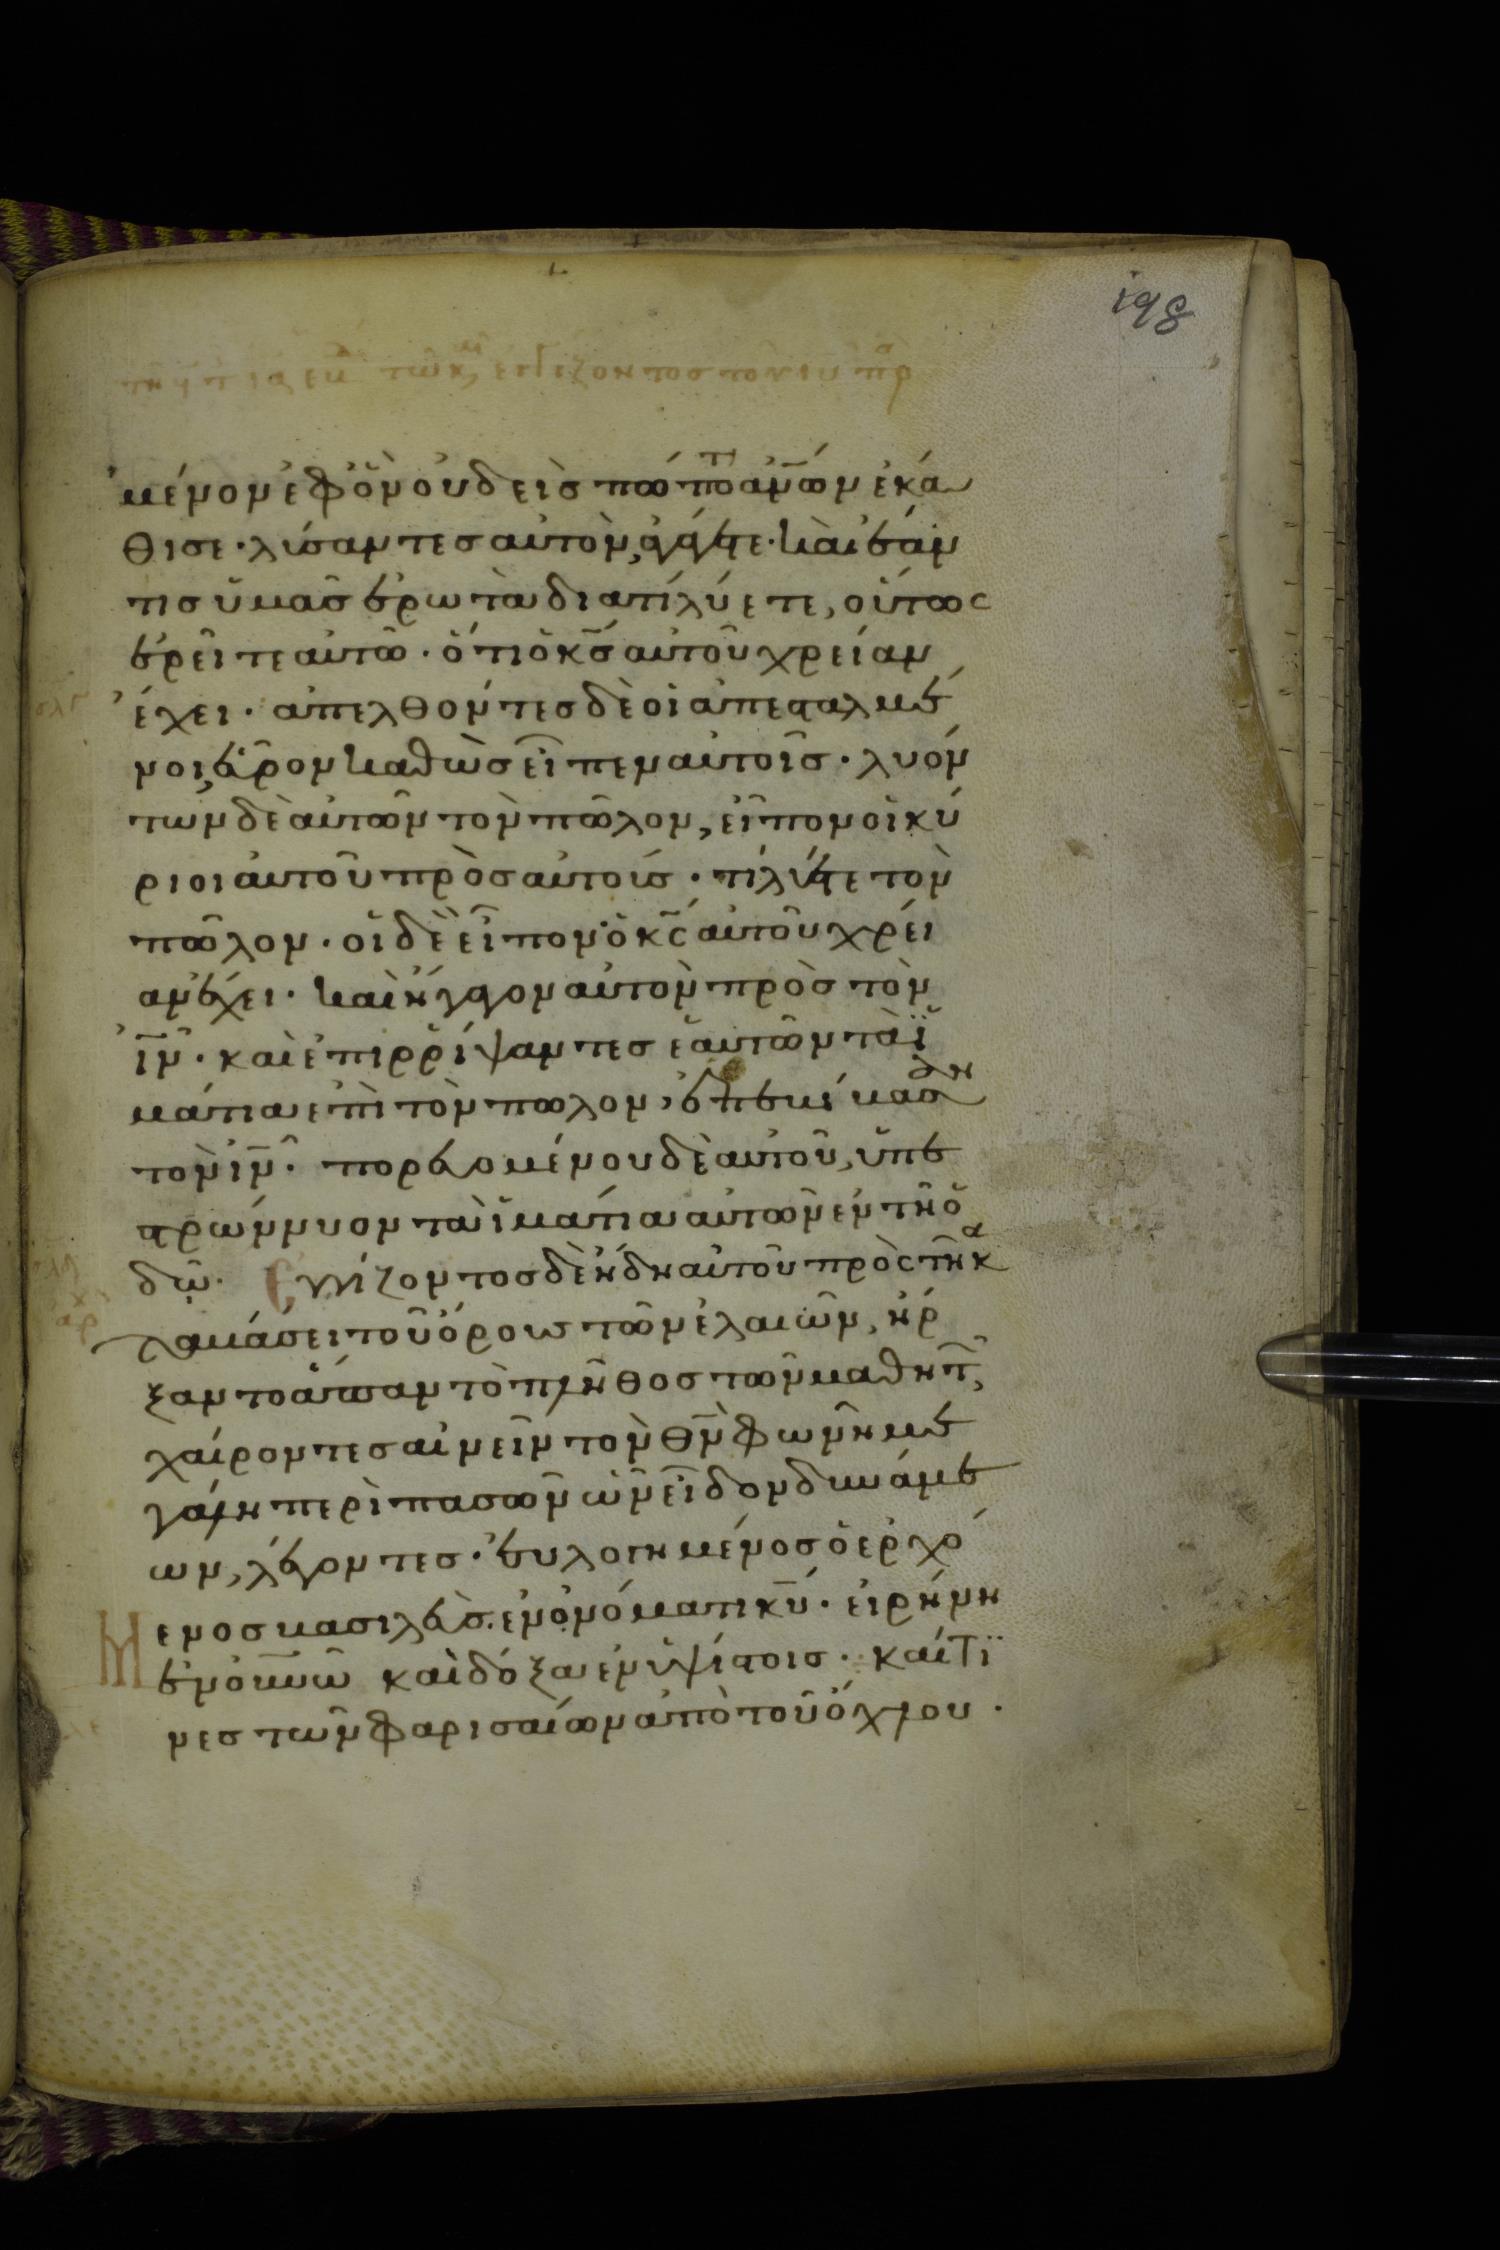 198
μένον ἐφ ὃν οὐδεὶς πώποτε ἀν̅ων ἐκά
θισε · λύσαντες αὐτὸν, ἀγάγετε · καὶ ἐάν
τις ὑμᾶς ἐρωτᾶ διατί λύετε, οὕτως
ἐρεῖτε αὐτῶ · ὅτι ὁ κ̅σ αὐτοῦ χρείαν
ἔχει · ἀπελθόντες δὲ οἱ ἀπεσταλμέ
νοι, εὗρον καθὼς εἶπεν αὐτοῖς · λυόν
των δὲ αὐτῶν τὸν πῶλον, εἶπον οἱ κύ
ριοι αὐτοῦ πρὸς αὐτούς · τί λύετε τὸν
πῶλον · οἱ δὲ εἶπον ὁ κ̅ς αὐτοῦ χρεί
αν ἔχει · καὶ ἤγαγον αὐτὸν πρὸς τὸν
ι̅ν · καὶ ἐπιρρίψαντες ἑαυτῶν τὰ ἱ
μάτια ἐπὶ τὸν πῶλον, ἐπεβίβασαν
τὸν ι̅ν · πορευομένου δὲ αὐτοῦ, ὑπε
στρώννυον τὰ ἱμάτια αὐτῶν ἐν τῆ ὁ
δῶ · Ἐγγίζοντος δὲ ἤδη αὐτοῦ πρὸς τῆ κα
ταβάσει τοῦ ὄρους τῶν ἐλαιῶν, ἤρ
ξαντο ἅπαν τὸ πλῆθος τῶν μαθητῶν,
χαίροντες αἰνεῖν τὸν θ̅ν φωνῆ με
γάλη περὶ πασῶν ὧν εἶδον δυνάμε
ων, λέγοντες · εὐλογημένος ὁ ἐρχό
μενος βασιλεὺς ἐν ὀνόματι κ̅υ · εἰρήνη
ἐν ο̅υ̅νω καὶ δόξα ἐν ὑψίστοις · καί τι
νες τῶν φαρισαίων ἀπὸ τοῦ ὄχλου ·